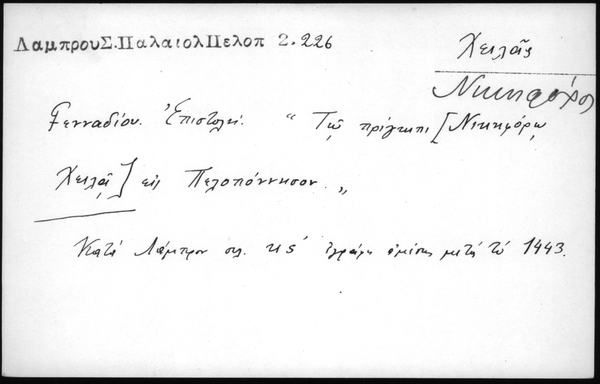 ΛαμπρουΣ.ΠαλαιολΠελοπ 2.226
Χειλᾶς
Νικηφόρος
Γενναδίου. Ἐπιστολή. " Τῷ πρίγκιπι [Νικηφόρῳ
Χειλᾷ] εἰς Πελοπόννησον. "
Κατά Λάμπρον σελ. κς' ἐγράφη ἀμέσως μετά τό 1443.